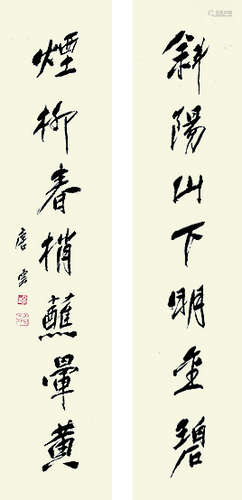 斜陽山下明金碧
煙柳春梢蘸暈黃
唐雲